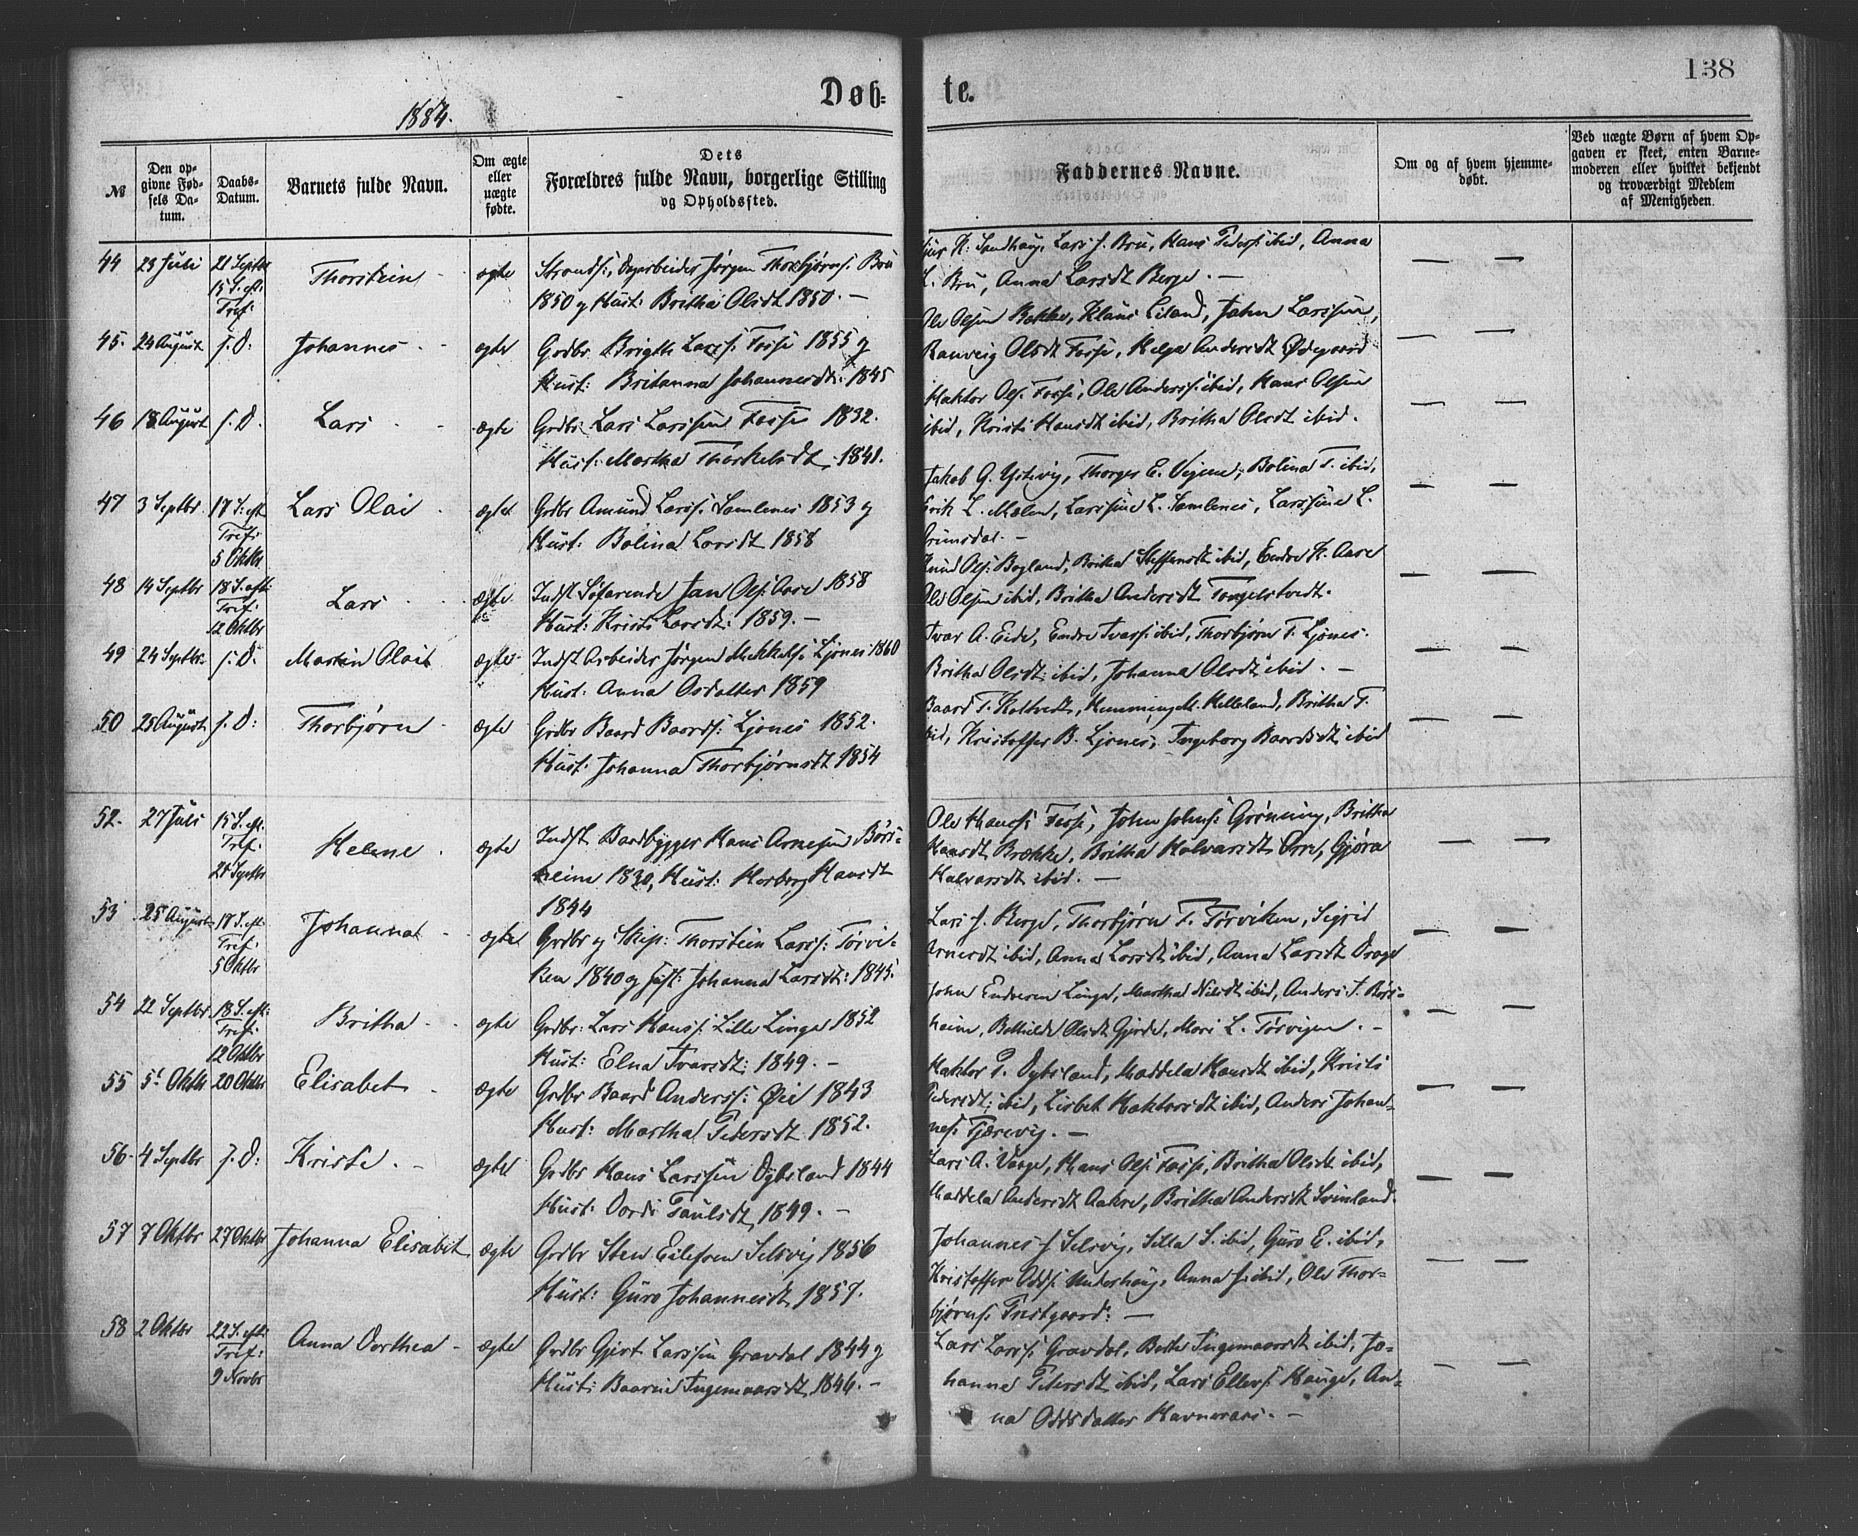 138
Døb-
te.
1884.
№
Den op-
givne Fød-
sels Da-
tum.
Daabs-
Datum.
Barnets fulde Navn.
Om ægte
eller
uægte
fødte.
Dets
Forældres fulde Navn, borgerlige Stilling
og Opholdssted.
Faddernes Navne.
Om og af hvem hjemme-
døbt.
Ved uægte Børn af hvem Op-
gaven er skeet, enten Barne-
moderen eller hvilket bekjendt
og troværdigt Medlem
af Menigheden.
44 23 Juli 21 Septbr Thorstein ægte Strands. Dagarbeider Jørgen Thorbjørns. Bru
15 S. eft.
Tref:
1850 og Hust: Britha Olsdt 1850. —
K. Sandhaug, Lars J. Bru, Hans Peders. ibid, Anna
L. Bru, Anna Larsdt Berge. —
45. 24 August s. D: Johannes ægte Grdbr. Brigth Larss. Fosse 1855 og
Hust: Britanna Johannesdt: 1845
Ole Olsen Bakke, Klaus Liland, John Larssen,
Ranveig Olsdt Fosse, Helga Andersdt Ødegaard
46 18 August s. D. Lars ægte Grdbr. Lars Larssen Fosse 1832.
Hust: Martha Thorkelsdt. 1841.
Haktor Ols. Fosse, Ole Anderss. ibid, Hans Olsen
ibid, Kristi Hansdt ibid, Britha Olsdt ibid.
47 3 Septbr 17 S. eft Lars Olai ægte Grdbr Amund Larss. Samlenes 1853 og
Tref:
5 Oktbr
Hust: Bolina Larsdt 1858
Jakob G. Ystivig, Thorger E. Vigene, Bolina T. ibid,
Erik L. Mælen, Larssine L. Samlenes, Larssine L.
48 14 Septbr 18 S. eft: Lars ægte Indst Søfarende Jan Ols. Aare 1858
Tref:
12 Oktbr
Hust: Kristi Larsdt: 1859. —
Knud Ols. Bogland, Britha Steffensdt ibid, Endre K. Aare
Ole Olsen ibid, Britha Andersdt Tongelstvedt.
49 24 Septbr. s. D. Martin Olai ægte Indst Arbeider Jørgen Mikkels. Ljones 1860
Hust: Anna Osdatter 1859
Ivar A. Eide, Endre Ivars. ibid, Thorbjørn T. Ljones.
Britha Olsdt: ibid, Johanna Olsdt ibid. —
50 25 August s. D: Thorbjørn ægte Grdbr Baard Baards: Ljones 1852.
Hust: Johanna Thorbjørnsdt 1854
Baard T. Holtvedt, Henning M. Helleland, Britha T.
ibid, Kristoffer B. Ljones, Ingeborg Baardsdt ibid
52. 27 Juli 15 S. eft. Helene ægte Indst Baadbygger Hans Arnesen Børs-
Tref:
21 Septbr
heim 1830, Hust: Herborg Hansdt
1844
Ole Hans. Fosse, John Johns. Grønning, Britha
Hansdt Brække, Britha Halvarsdt Orre, Gjøra
Halvarsdt ibid. —
53 25 August 17 S. eft: Johanna ægte Grdbr og Skip: Thorstein Larss: Tørvi-
Tref:
5 Oktbr
ken 1840 og Hust: Johanna Larsdt: 1845.
Lars J. Berge, Thorbjørn T. Tørviken, Sigrid
Arnesdt ibid, Anna Larsdt ibid, Anna Larsdt Drage
54 22 Septbr 18 S. eft: Britha ægte Grdbr: Lars Hans. Lille Linga 1852
Tref:
12 Oktbr
Hust: Elna Ivarsdt: 1849. —
John Endresen Linga, Martha Nilsdt ibid, Anders J. Børs-
heim, Bothilde Olsdt Gjerde, Mari L. Tørvigen. —
55 5 Oktbr 20 Oktbr Elisabet ægte Grdbr Baard Anderss: Øie 1843
Hust: Martha Pedersdt. 1852.
Haktor P. Dybsland, Maddela Hansdt ibid, Kristi
Pedersdt: ibid, Lisbet Haktorsdt ibid, Anders Johan-
nes. Tjærevig. —
56. 4 Septbr s. D: Kriste. ægte Grdbr Hans Larssen Dybsland 1844
Hust: Dordi Paulsdt, 1849. —
Lars A. Vaage, Hans Ols. Fosse, Britha Olsdt ibid,
Maddela Andersdt Aakre, Britha Andersdt Svinland.
57 7 Oktbr 27 Oktbr Johanna Elisabet ægte Grdbr Sten Eilefsen Selsvig 1856
Hust: Guro Johannesdt, 1857.
Johannes J Selsvig, Silla S. ibid, Guro E. ibid,
Kristoffer Odds. Underhaug, Anna J. ibid, Ole Thor-
bjørns. Prestgaard: —
58 2 Oktbr 22 S. eft: Anna Dorthea ægte Grdbr Gjert Larssen Gravdal 1844 og
Tref:
9 Novbr
Hust: Baarne Ingemaarsdt 1846. —
Lars Larss. Gravdal, Berte Ingemaarsdt ibid, Jo-
hanne Pedersdt ibid, Lars Ellefs. Hauge, An-
na Oddsdatter Havneraas. —